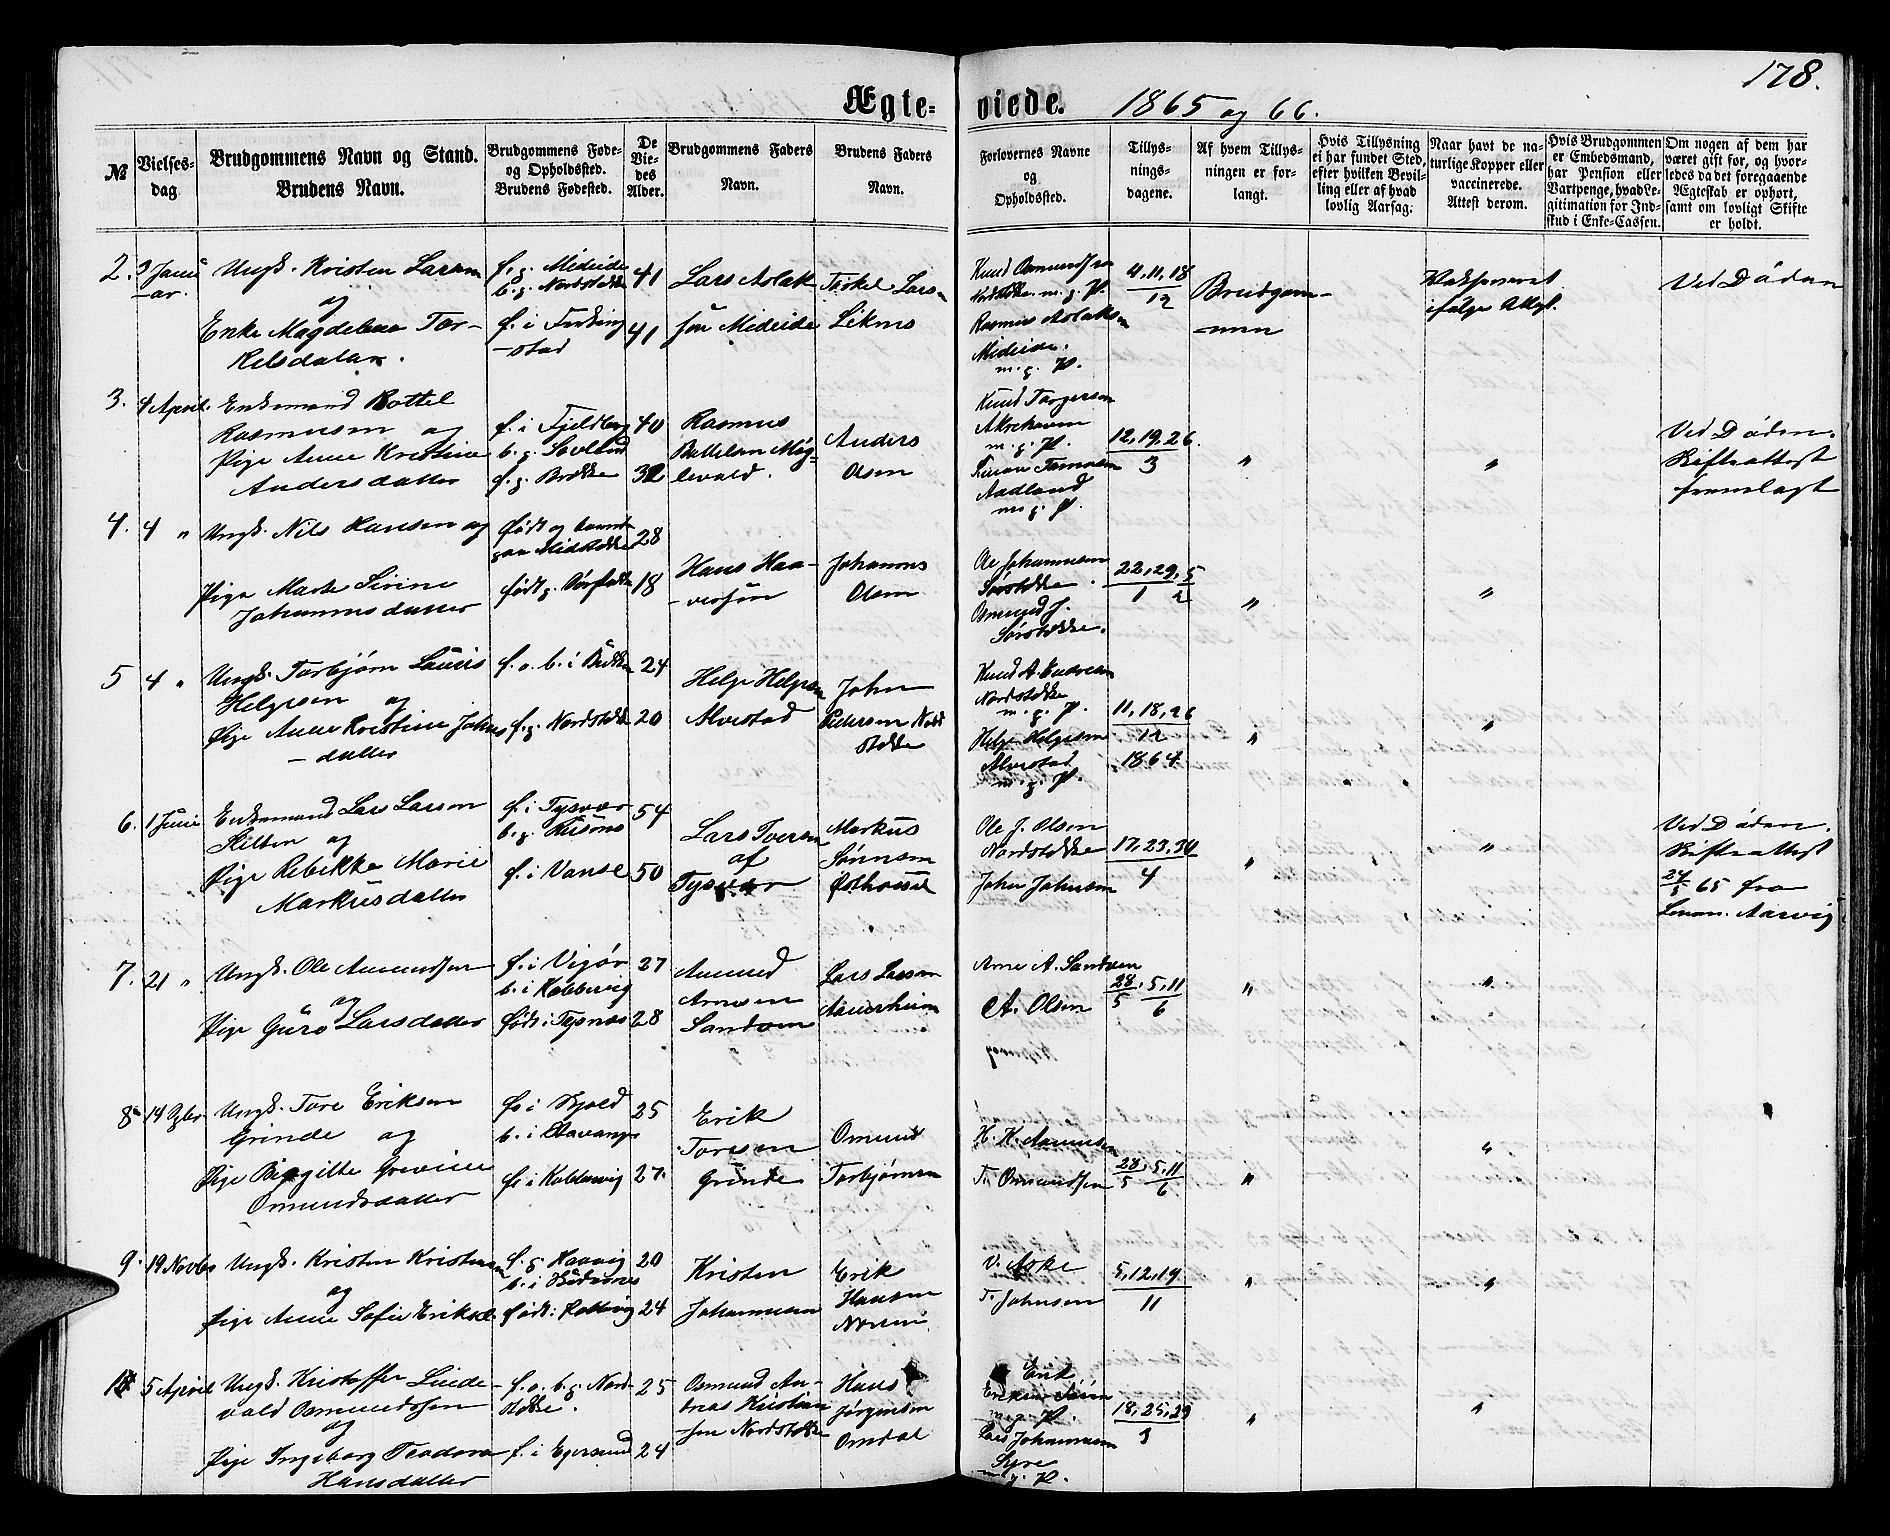 178.
Ægte=viede. 1865 og 66.
№
Vielses-dag
Brudgommens Navn og Stand.
Brudens Navn.
Brudgommens Føde-
og Opholdssted.
Brudens Fødested.
De
Vie-
des
Alder.
Brudgommens Faders
Navn.
Brudens Faders
Navn.
Forlovernes Navne
og
Opholdssted.
Tillys-
nings-
dagene.
Af hvem Tillys-
ningen er for-
langt.
Hvis Tillysning
ei har fundet Sted,
efter hvilken Bevil-
ling eller af hvad
lovlig Aarsag.
Naar havt de na-
turlige Kopper eller
vaccinerede.
Attest derom.
Hvis Brudgommen
er Embedsmand,
har Pension eller
Vartpenge, hvad Le-
gitimation for Ind-
skud i Enke-Cassen.
Om nogen af dem har
været gift før, og hvor-
ledes da det foregaaende
Ægteskab er ophørt,
samt om lovligt Skifte
er holdt.
2.
Ungk. Kristen Larsen
og
Enke Magdelena Tor-
kelsdatter.
41
41
Lars Aslak
søn Mideide
Knud Osmundsen
m. g. P.
Rasmus Aslaksen
Mideide.
m. g. P.
4, 11, 18
12
Brudgom-
men
ifølge Attest.
Ved Døden
3.
4 April.
Enkemand Bottel
Rasmusen og
Pige Anne Kristine
Andersdatter
f. i Fjeldberg
40
32
Rasmus
Anders
Olsen
Knud Torgersen
Akrehavn
m. g. P.
Aadland
m. g. P.
12, 19, 26.
3
"
"
Ved Døden.
Skifteattest
fremlagt
4.
4 "
Ungk. Nils Hansen og
Pige Marte Serine
Johannesdatter
28
18
Hans Haa-
versøn
Johannes
Olsen
Ole Johannesen
Sørstokke.
Osmund J.
Sørstokke.
22, 29, 5
1 2
"
"
5
4 "
Ungk. Torbjørn Lauris
Helgesen og
Pige Anne Kristine Johns
-datter
f. g. Nordstokke
24
20
Helge Helgesen
Alvestad
John
Pedersen Nord
stokke
Knud A. Endresen
Nordstokke
m. g. P.
Helge Helgesen
Alvestad
m. g. P.
11, 18, 26
12
1864
"
"
6.
1 Juni
Enkemand Lars Larsen
og
Pige Rebekke Marie
Markusdatter
f. i Tysvær
f. i Vanse
54
50
Lars Iversen
af
Tysvær
Markus
Sørensen
Ole J. Olsen
Nordstokke
John Johnsen
17, 23, 30
4
"
"
Ved Døden.
Skifteattest
24/5 65 fra
Lensm. Aarvig
7.
21 "
Ungk. Ole Amundsen
og
Pige Guro Larsdatter
b. i Kobbervig
født i Tysnes
27
28
Amund
Arnesen
Sandven
Lars Larsen
Arne A. Sandven
A. Olsen
28, 5, 11
5 6
"
"
8
14
Ungk. Tore Eriksen
Grinde og
Pige Birgitte Grevine
Omundsdatter
f. i Skjold
b. i Stavanger
f. i Kobbervig
25
27.
Erik
Toresen
Grinde
Omund
Torbjørnsen
H. K. Rasmusen
T. Ommundsen
28, 5, 11
5 6
"
"
9.
19 Novbr
Ungk. Kristen Kristensen
og
Pige Anne Sofie Eriksd.
20
24
Kristen
Johannesen
Erik
Hansen
V. Aske
T. Johnsen
5, 12, 19
11
"
"
5 April
Ungk. Kristoffer Linde-
vald Osmundsen
og
Pige Ingeborg Teodora
Hansdatter
f. o. b. g. Nord-
stokke.
f. i Egersund
25
24
Osmund An-
dreas Kristian
sen Nordstokke
Hans
Jørgensen
Omdal
Erik
m. g. P.
Lars Johannesen
Syre
m. g. P.
18, 25, 29
3
"
"